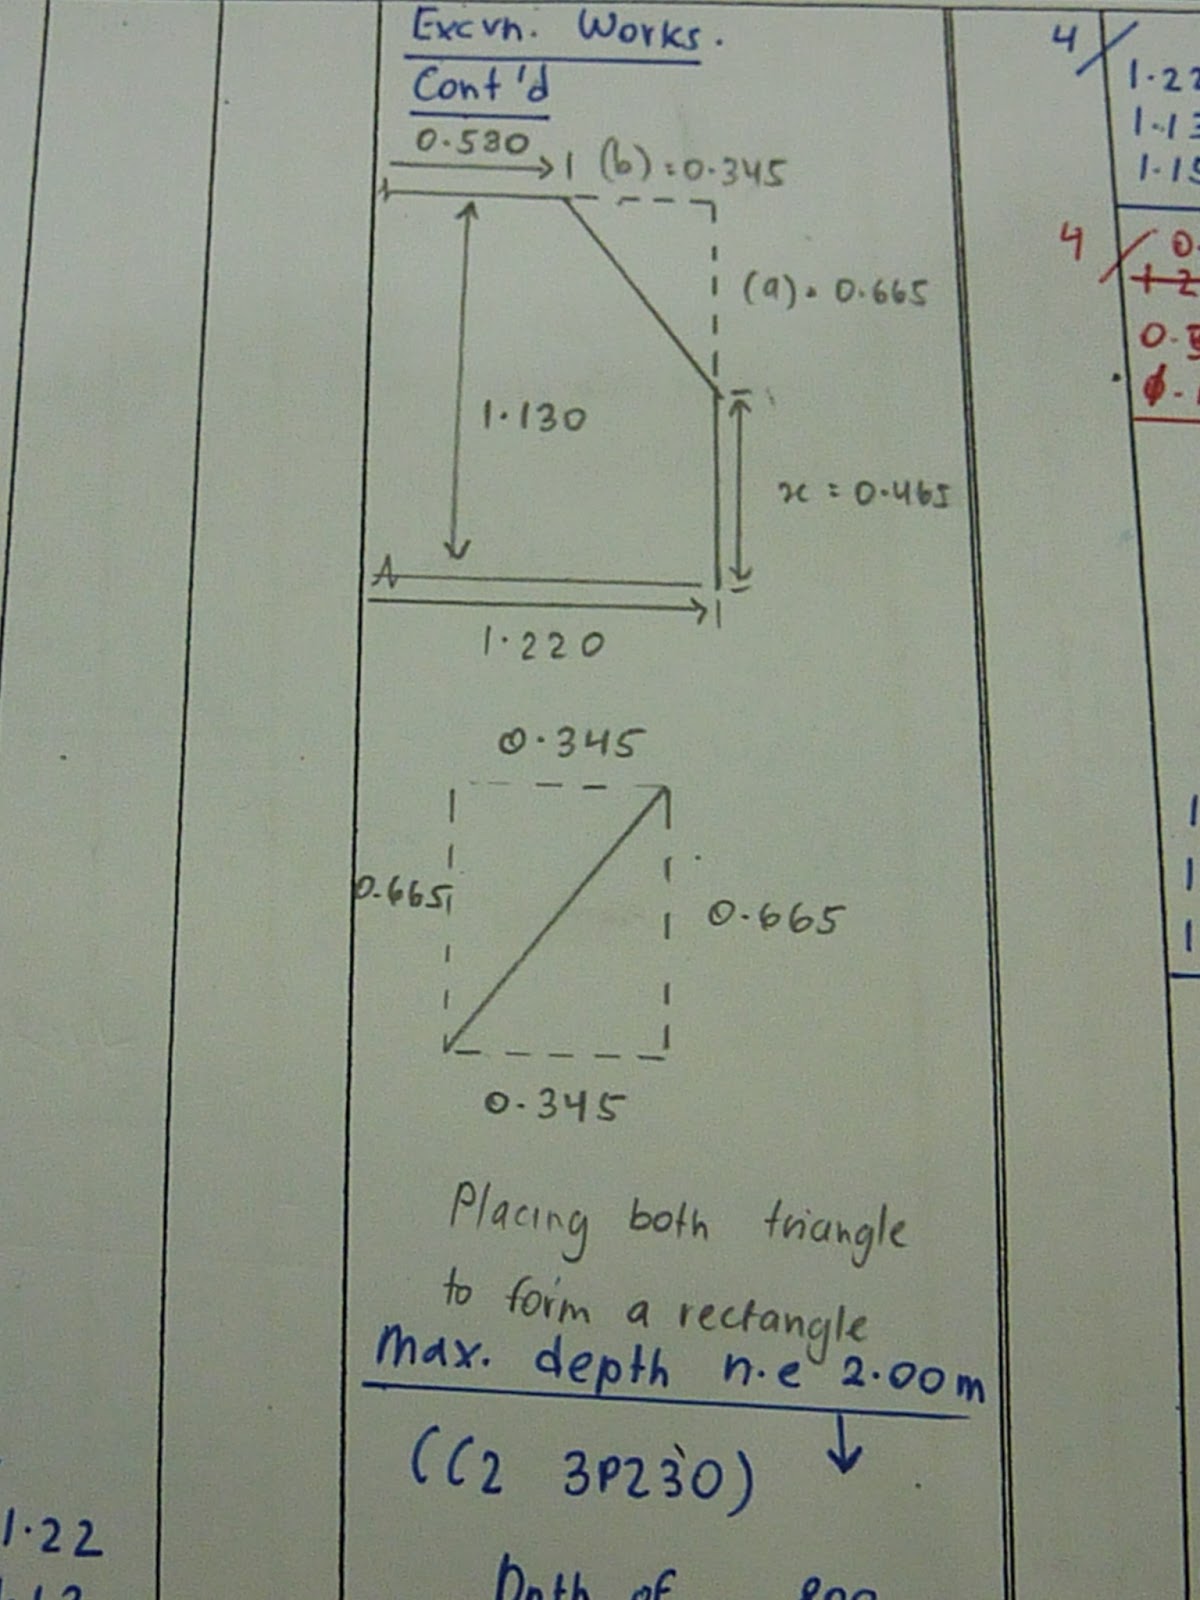 Excvn. Works.
Cont'd
0.530
(b) = 0.345
(a) = 0.665
1.130
x = 0.465
1.220
0.345
0.665
0.665
0.345
Placing both triangle
to form a rectangle
max. depth n.e 2.00m
4/
1.22
1.13
1.15
4/
1.22